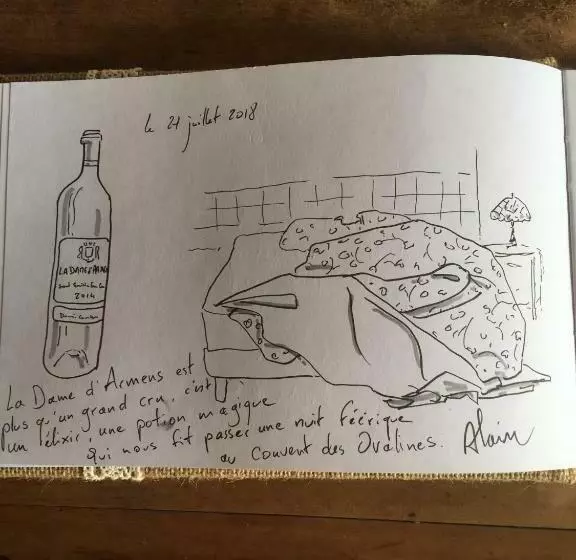 le 21 juillet 2018
LA DAME D'ARMENS
Saint Emilion Grand Cru
2014
La Dame d'Armens est
plus qu'un grand cru, c'est
un élixir, une potion magique
qui nous fit passer une nuit féérique
au Couvent des Ovalines.
Alain